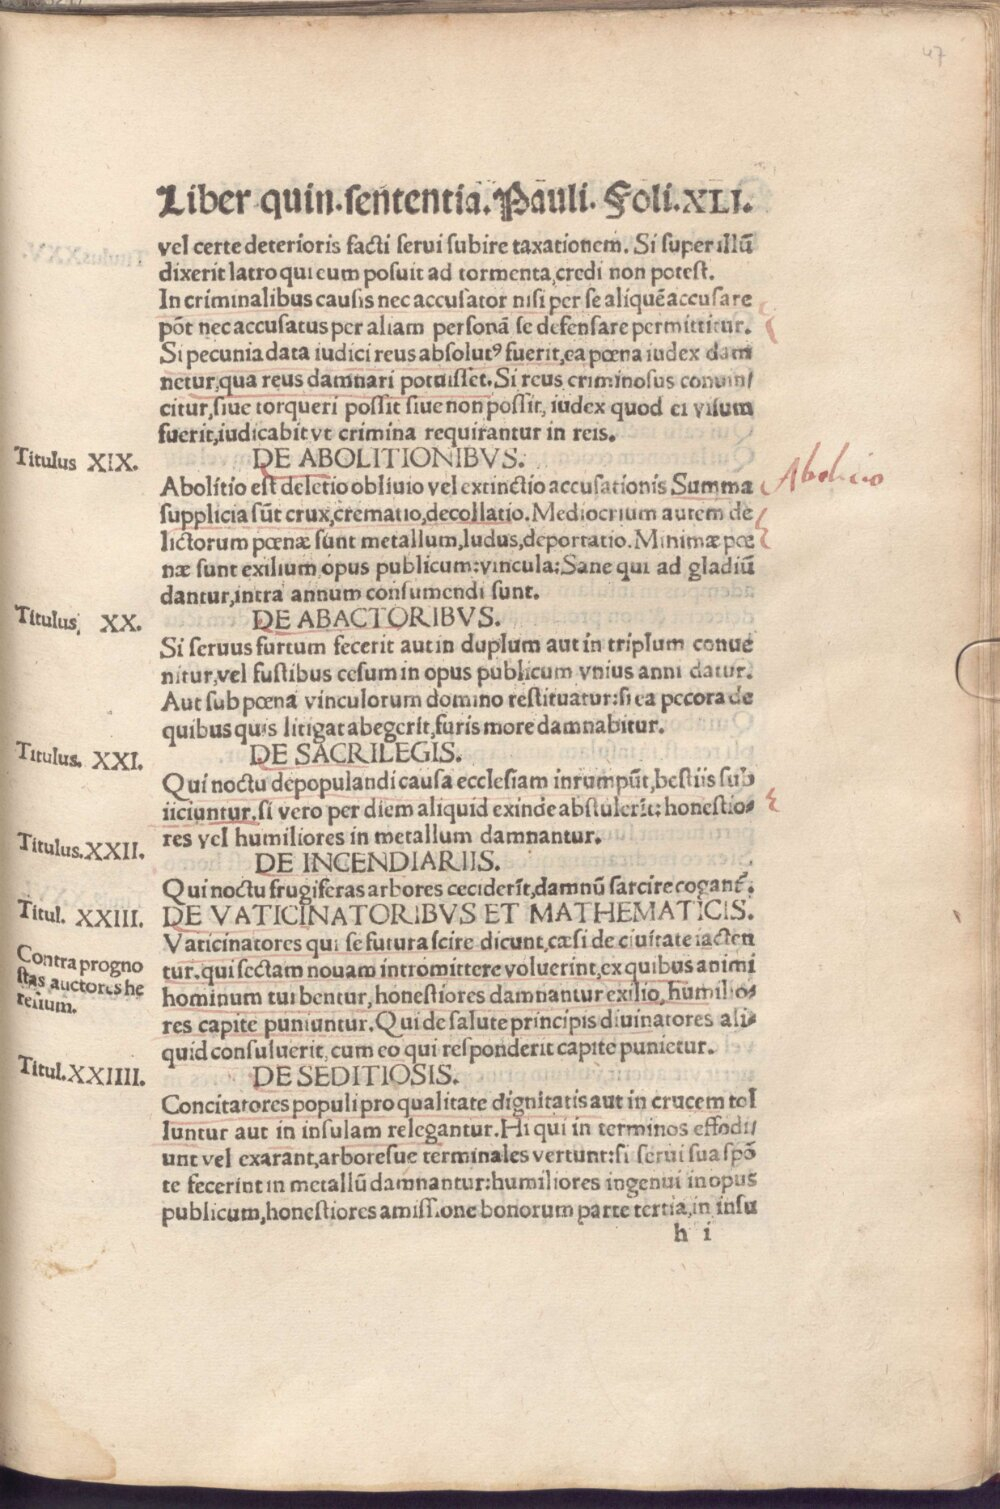 47
Liber quin. sententia. Pauli. Foli. XLI.
vel certe deterioris facti serui subire taxationem. Si super illū
dixerit latro qui eum posuit ad tormenta, credi non potest.
In criminalibus causis nec accusator nisi per se aliquē accusare
pōt nec accusatus per aliam personā se defensare permittitur.
Si pecunia data iudici reus absolutꝰ fuerit, ea pœna iudex dam
netur, qua reus damnari potuisset. Si reus criminosus conuin/
citur, siue torqueri possit siue non possit, iudex quod ei visum
fuerit, iudicabit vt crimina requirantur in reis.
Titulus XIX. DE ABOLITIONIBVS.
Abolitio est deletio obliuio vel extinctio accusationis Summa
Abolicio
supplicia sūt crux, crematio, decollatio. Mediocrium autem de
lictorum pœnæ sunt metallum, ludus, deportatio. Minimæ pœ
næ sunt exilium opus publicum: vincula: Sane qui ad gladiū
dantur, intra annum consumendi sunt.
Titulus XX. DE ABACTORIBVS.
Si seruus furtum fecerit aut in duplum aut in triplum conue
nitur, vel fustibus cesum in opus publicum vnius anni datur.
Aut sub pœna vinculorum domino restituatur: si ea pecora de
quibus quis litigat abegerit, furis more damnabitur.
Titulus. XXI. DE SACRILEGIS.
Qui noctu depopulandi causa ecclesiam inrumpūt, bestiis sub
iiciuntur. si vero per diem aliquid exinde abstulerīt: honestio-
res vel humiliores in metallum damnantur.
Titulus. XXII. DE INCENDIARIIS.
Qui noctu frugiferas arbores ceciderīt, damnū sarcire cogant̄.
Titul. XXIII. DE VATICINATORIBVS ET MATHEMATICIS.
Vaticinatores qui se futura scire dicunt, cæsi de ciuitate iacten
Contra progno
stas auctores he
resium.
tur. qui sectam nouam intromittere voluerint, ex quibus animi
hominum turbentur, honestiores damnantur exilio, humilio-
res capite puniuntur. Qui de salute principis diuinatores ali-
quid consuluerit, cum eo qui responderit capite punietur.
Titul. XXIIII. DE SEDITIOSIS.
Concitatores populi pro qualitate dignitatis aut in crucem tol
luntur aut in insulam relegantur. Hi qui in terminos effodi/
unt vel exarant, arboresue terminales vertunt: si serui sua spō
te fecerint in metallū damnantur: humiliores ingenui in opus
publicum, honestiores amissione bonorum parte tertia, in insu
h i